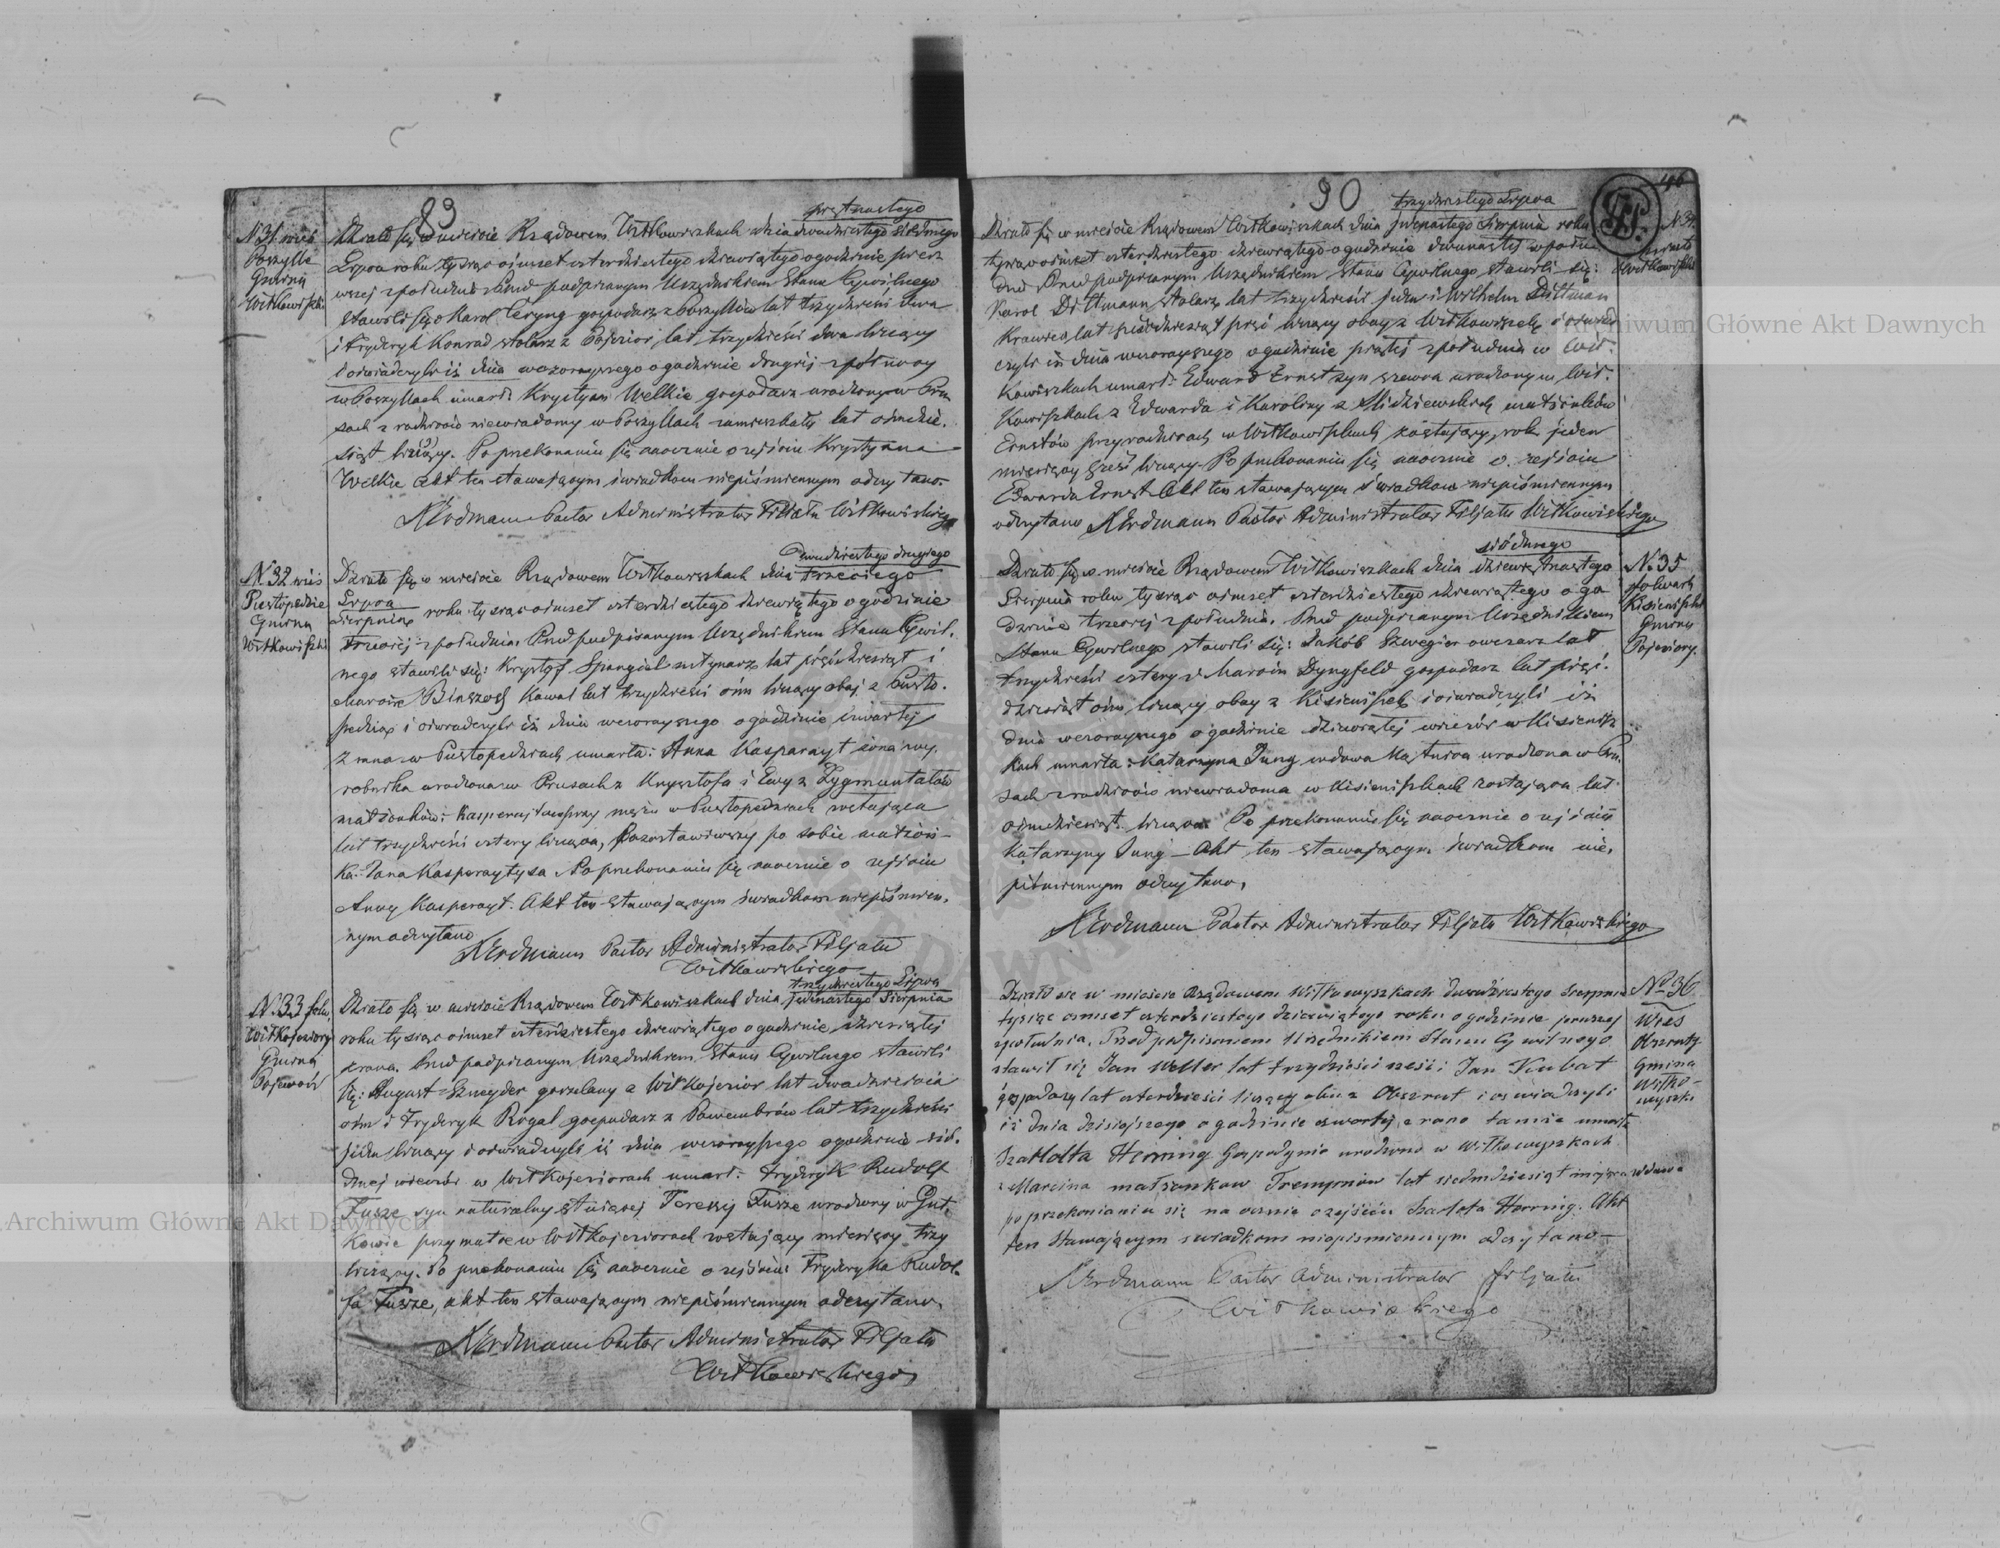 89
N 31 wieś
Poszylle
Gminy
Witkowiszki
piętnastego
Działo się w mieście Rządowem Witkowiszkach dnia dwudziestego siódmego
Lipca roku tysiąc ośmset czterdziestego dziewiątego o godzinie pierw
wszej z południa Przed podpisanym Urzędnikiem Stanu Cywilnego
stawili się Karol Ceryng gospodarz z Poszyllów lat trzydzieści dwa
i Fryderyk Konrad stolarz z Pojezior, lat trzydzieści dwa liczący
i oświadczyli iż dnia wczorayszego o godzinie drugiej z północy
w Poszyllach umarł: Krystyan Welkie gospodarz urodzony w Pru
sach z rodziców niewiadomy w Poszyllach zamieszkały lat ośmdzie.
siąt liczący. Po przekonaniu się naocznie o zejściu Krystyana
Welkie akt ten stawającym świadkom niepiśmiennym odczytano.
NErdmann Pastor Administrator Filiału Witkowiskiego
N. 32 wieś
Pustopedzie
Gminy
Witkowiszki
Dwudziestego drugiego
Działo się w mieście Rządowem Witkowiszkach dnia trzeciego
Lipca
Sierpnia roku tysiąc ośmset czterdziestego dziewiątego o godzinie
trzeciej z południa: Przed podpisanym Urzędnikiem Stanu Cywil.
nego stawili się: Krysztof Spangiel młynarz lat pięćdziesiąt i
Marcin Binszos kowal lat trzydzieści ośm liczący obaj z Pusto.
pedziow i oświadczyli iż dnia wczorayszego o godzinie czwartej
z rana w Pustopedziach umarła: Anna Kasparayt żona wy.
robnika urodzona w Prusach z Krysztofa i Ewy z Zygmuntatów
małżonków: przy mężu w Pustopedziach zostająca
lat trzydzieści cztery licząca, Pozostawiwszy po sobie małżon-
ka: Jana Kasparaytysa Po przekonaniu się naocznie o zejściu
Anny Kasperayt. Akt ten stawającym świadkom niepiśmien.
nym odczytano
NErdmann Pastor Administrator Filjału
Witkowiskiego
N. 33 folw.
Witkojeziory
Gminy
Pojewoń
trzydziestego Lipca
Działo się w mieście Rządowem Witkowiszkach dnia jedenastego Sierpnia
roku tysiąc ośmset czterdziestego dziewiątego o godzinie dziesiątej
z rana. Przed podpisanym Urzędnikiem Stanu Cywilnego stawili
się: August Szneyder gorzelany z Witkojezior lat dwadzieścia
ośm i Fryderyk Rogal gospodarz z Pawembrów lat trzydzieści
jeden liczący i oświadczyli iż dnia wczorayszego o godzinie siód.
dmej wieczór w Witkojeziorach umarł: Fryderyk Rudolf
Fusze syn naturalny służącej Teressy Fusze urodzony w Gut.
kowie przy matce w Witkojeziorach zostający miesięcy trzy
liczący. Po przekonaniu się naocznie o zejściu Fryderyka Rudol.
fa Fusze, akt ten stawającym niepiśmiennym odczytano.
NErdmann Pastor Administrator Filjału
Witkowiskiego
90
46
N 34.
miasto
Witkowiszki
trzydziestego Lipca
Działo się w mieście Rządowem Witkowiszkach dnia jedenastego Sierpnia roku
tysiąc ośmset czterdziestego dziewiątego o godzinie dwunastej w południe
Przed podpisanym Urzędnikiem Stanu Cywilnego stawili się:
Karol Dittmann stolarz lat trzydzieści jeden i Wilhelm Dittman
krawiec lat pięćdziesiąt pięć liczący obay z Witkowiszek i oświad
czyli iż dnia wczorayszego o godzinie piątej z południa w Wit.
kowiszkach umarł: Edward Ernst syn szewca urodzony w Wit.
kowiszkach z Edwarda i Karoliny z małżonków
Ernstów przy rodzicach w Witkowiszkach zostający, rok jeden
miesięcy sześć liczący Po przekonaniu się naocznie o zejściu
Edwarda Ernst Akt ten stawającym świadkom niepiśmiennym
odczytano NErdmann Pastor Administrator Filjału Witkowiskiego
N. 35
folwark
Kisieniszki
Gminy
Pojeziory.
siódmego
Działo się w mieście Rządowem Witkowiszkach dnia dziewiętnastego
Sierpnia roku tysiąc ośmset czterdziestego dziewiątego o go
dzinie trzeciej z południa. Przed podpisanym Urzędnikiem
Stanu Cywilnego stawili się: Jakób Szwegier owczarz lat
trzydzieści cztery i Marcin Dyngfeld gospodarz lat pięć.
dziesiąt ośm liczący obay z Kisieniszek i oświadczyli iż
dnia wczorayszego o godzinie dziewiątej wieczór w Kisienisz
kach umarła: Katarzyna Jung wdowa urodzona w Pru.
sach z rodziców niewiadoma w Kisieniszkach zostająca lat
ośmdziesiąt licząca. Po przekonaniu się naocznie o zejściu
Katarzyny Jung Akt ten stawającym świadkom nie.
piśmiennym odczytano.
NErdmann Pastor Administrator Filjału Witkowiskiego
No 36
Wieś
Obszruty
Gmina
Witko-
wyszki
Działo sie w mieście Rządowem Witkowyszkach dwudziestego Sierpnia
tysiąc osmset czterdziestego dziewiątego roku o godzinie pierwszej
z południa. Przed podpisanem Urzednikiem Stanu Cywilnego
stawił się Jan Weller lat trzydzieści sześć i Jan Kubat
gospodarz lat czterdzieści liczący oba z Obszrut i oswiadczyli
iż dnia dzisiejszego o godzinie czwartej z rana tamże umarła
Szarlotta Herring Gospodynia urodzona w Witkowyszkach
z Marcina małżonkow Tremprow lat siedmdziesiąt mająca wdowa
po przekonaniu się na ocznie o zejściu Szarlota Herrnig. Akt
ten stawającym swiadkom niepismiennym odczytano
NErdmann Pastor Administrator Filjału
Witkowiskiego
Archiwum Główne Akt Dawnych
Archiwum Główne Akt Dawnych